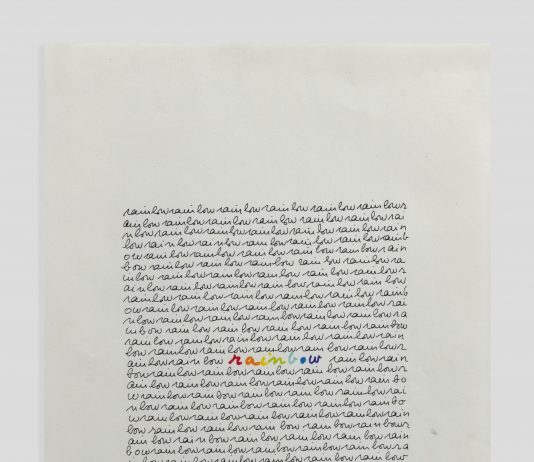 rainbowrainbowrainbowrainbowrainbowr
ainbowrainbowrainbowrainbowrainbowrai
nbowrainbowrainbowrainbowrainbowrain
bowrainbowrainbowrainbowrainbowrainb
owrainbowrainbowrainbowrainbowrain
bowrainbowrainbowrainbowrainbowra
inbowrainbowrainbowrainbowrainbowr
ainbowrainbowrainbowrainbowrainbow
rainbowrainbowrainbowrainbowrainb
owrainbowrainbowrainbowrainbowrai
nbowrainbowrainbowrainbowrainbowra
inbowrainbowrainbowrainbowrainbow
rainbowrainbowrainbowrainbowrain
bowrainbowrainbowrainbowrainbowr
ainbowrainbow rainbow rainbowrain
bowrainbowrainbowrainbowrainbowr
ainbowrainbowrainbowrainbowrainbo
wrainbowrainbowrainbowrainbowrai
nbowrainbowrainbowrainbowrainbo
wrainbowrainbowrainbowrainbowrain
bowrainbowrainbowrainbowrainbowr
ainbowrainbowrainbowrainbowrain
bowrainbowrainbowrainbowrainbowrain